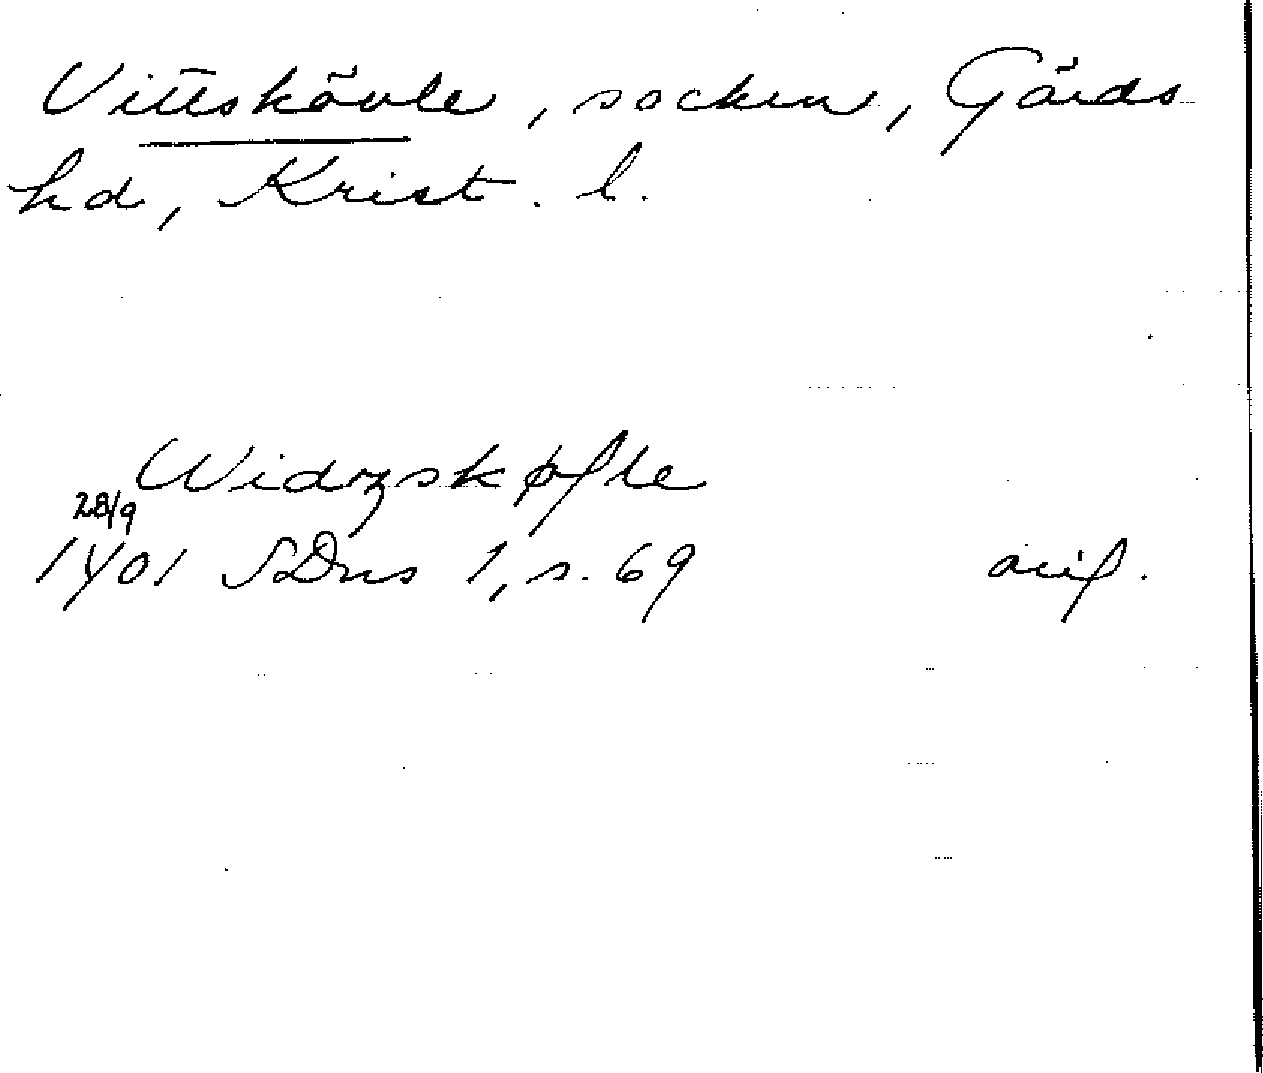 Vittskövle, socken, Gärds
hd, Krist. l.
Widzskøfle
28/9
1401 SDns 1, s. 69 avif.